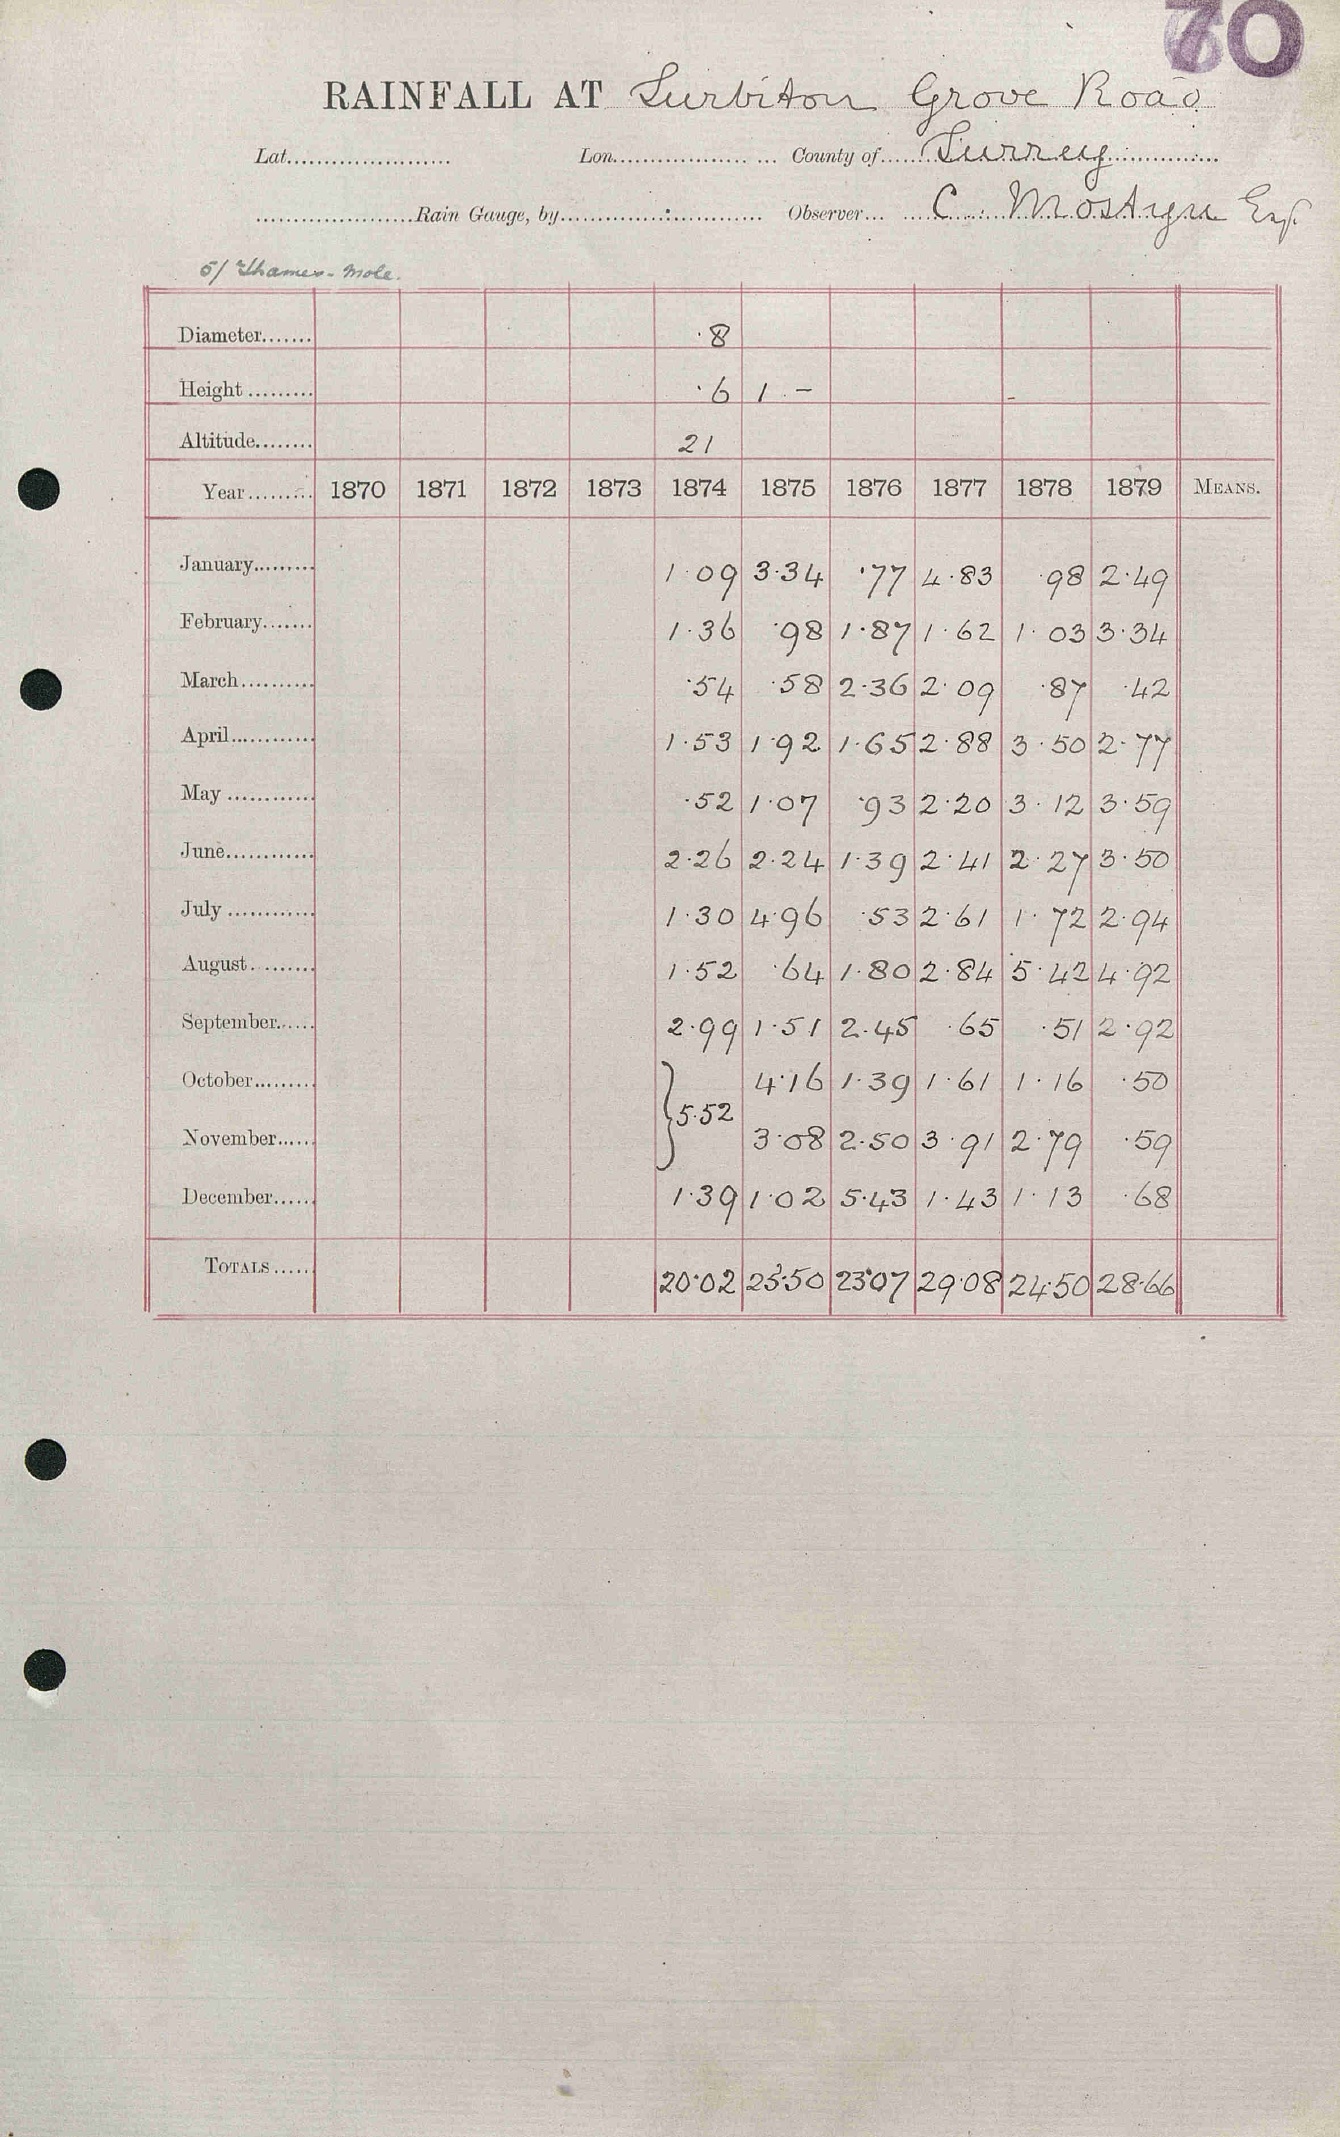 70
RAINFALL AT Surbiton Grove Road
Lat...................... Lon.................... ... County of......Surrey...............
......................Rain Gauge, by.......................... Observer... ....C. Mostyn Esq
5/ Thames - Mole.
Diameter....... ·8
Height ......... ·6 1 - -
Altitude........ 21
Year......... 1870 1871 1872 1873 1874 1875 1876 1877 1878 1879 MEANS.
January......... 1·09 3·34 ·77 4·83 ·98 2·49
February....... 1·36 ·98 1·87 1·62 1·03 3·34
March.......... ·54 ·58 2·36 2·09 ·87 ·42
April............ 1·53 1·92 1·65 2·88 3·50 2·77
May ............ ·52 1·07 ·93 2·20 3·12 3·59
June............ 2·26 2·24 1·39 2·41 2·27 3·50
July ............ 1·30 4·96 ·53 2·61 1·72 2·94
August......... 1·52 ·64 1·80 2·84 5·42 4·92
September...... 2·99 1·51 2·45 ·65 ·51 2·92
October......... 4·16 1·39 1·61 1·16 ·50
} 5·52
November...... 3·08 2·50 3·91 2·79 ·59
December...... 1·39 1·02 5·43 1·43 1·13 ·68
TOTALS ..... 20·02 25·50 23·07 29·08 24·50 28·66